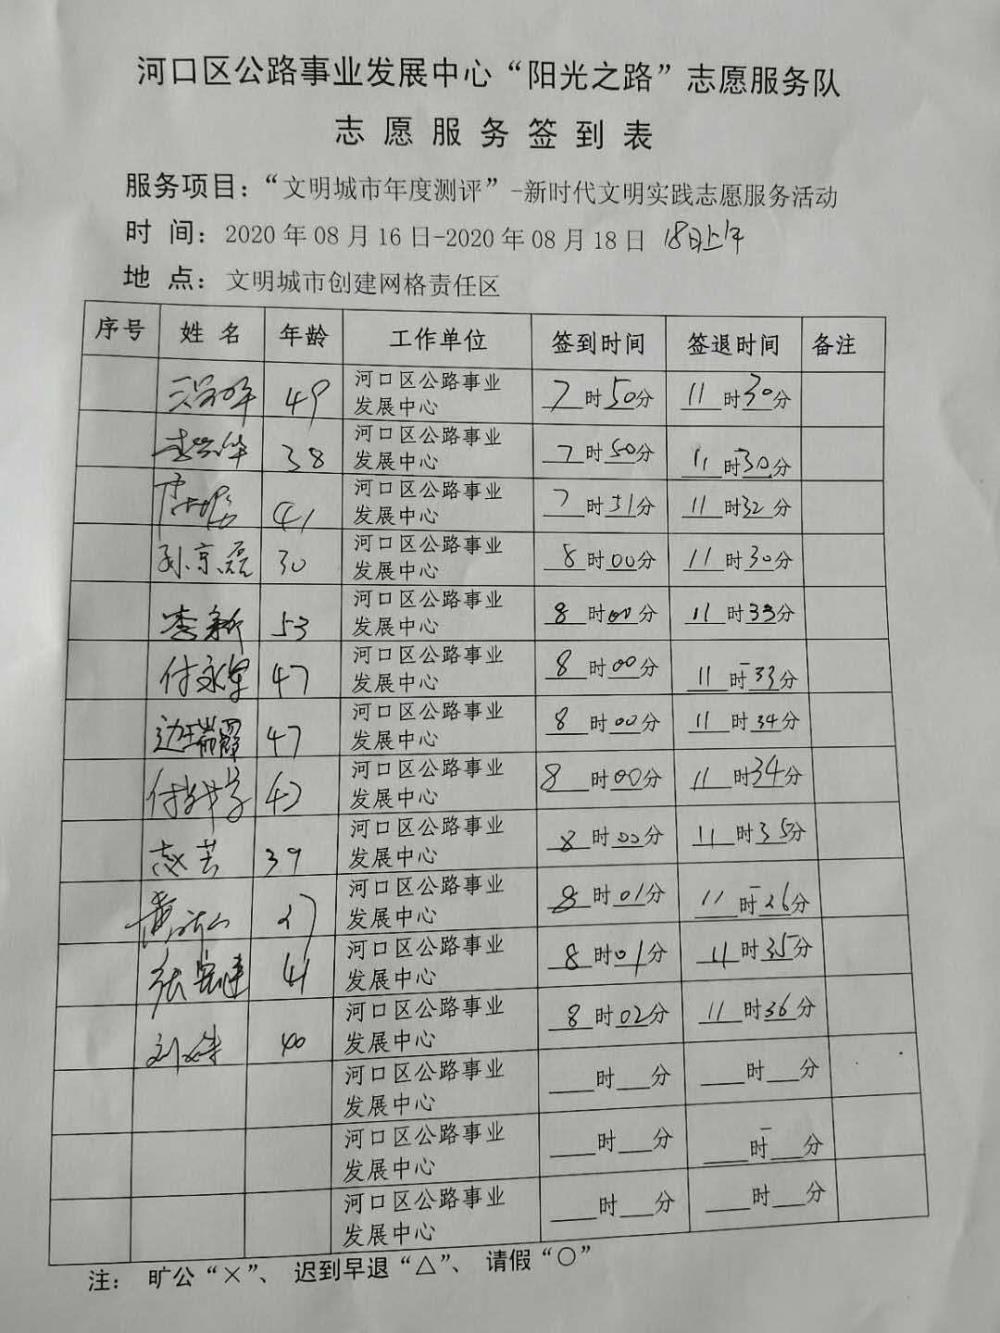 河口区公路事业发展中心“阳光之路”志愿服务队
志愿服务签到表
服务项目：“文明城市年度测评”-新时代文明实践志愿服务活动
时 间：2020 年 08 月 16 日-2020 年 08 月 18 日 18日上午
地 点：文明城市创建网格责任区
序号 姓 名 年龄 工作单位 签到时间 签退时间 备注
49 河口区公路事业发展中心 7时50分 11时30分
38 河口区公路事业发展中心 7时50分 11时30分
41 河口区公路事业发展中心 7时51分 11时32分
孙京磊 30 河口区公路事业发展中心 8时00分 11时30分
李新 53 河口区公路事业发展中心 8时00分 11时33分
付永军 47 河口区公路事业发展中心 8时00分 11时33分
边瑞霞 47 河口区公路事业发展中心 8时00分 11时34分
河口区公路事业发展中心 8时00分 11时34分
赵芸 39 河口区公路事业发展中心 8时00分 11时35分
河口区公路事业发展中心 8时01分 11时26分
张宪建 41 河口区公路事业发展中心 8时01分 11时35分
40 河口区公路事业发展中心 8时02分 11时36分
河口区公路事业发展中心 时 分 时 分
河口区公路事业发展中心 时 分 时 分
河口区公路事业发展中心 时 分 时 分
注： 旷公“×”、 迟到早退“△”、 请假“○”